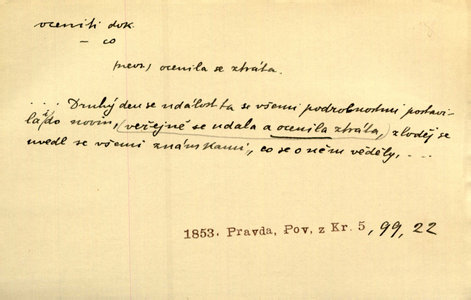 oceniti dok.
– co
(neos.) ocenila se ztráta.
.... Druhý den se událost ta se všemi podrobnostmi postavi-
la do novin, (veřejně se udala a ocenila ztráta,) zloděj se
uvedl se všemi známkami, co se o něm věděly, ...
1853. Pravda, Pov. z Kr. 5, 99, 22